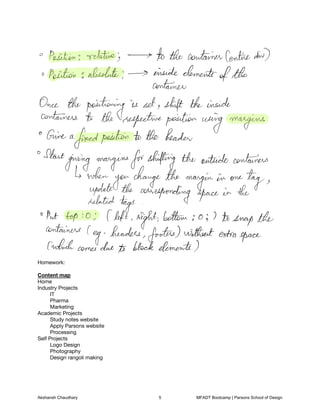 ◦ Position: relative; ⟶ to the container (entire div)
◦ Position: absolute; ⟶ inside elements of the
container
Once the positioning is set, shift the inside
containers to the respective position using margins
◦ Give a fixed position to the header
◦ Start giving margins for shifting the outside containers
↳ when you change the margin in one tag,
update the corresponding space in the
related tags
◦ Put top: 0; (left, right, bottom: 0;) to snap the
containers (eg. headers, footers) without extra space
(which comes due to block elements)
Homework:
Content map
Home
Industry Projects
IT
Pharma
Marketing
Academic Projects
Study notes website
Apply Parsons website
Processing
Self Projects
Logo Design
Photography
Design rangoli making
Akshansh Chaudhary 5 MFADT Bootcamp | Parsons School of Design